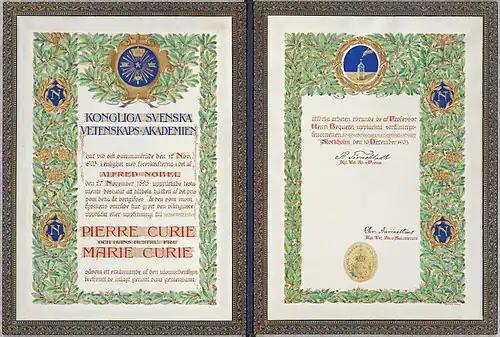 KONGLIGA SVENSKA
VETENSKAPS-AKADEMIEN
har vid sitt sammanträde den 12 Nov.
i enlighet med föreskrifterna i det af
ALFRED NOBEL
den 27 November 1895 upprättade testa-
mente beslutat att
som detta år bortgifves åt den som inom
fysikens område har gjort den viktigaste
upptäckt eller uppfinning till
PIERRE CURIE
OCH HANS HUSTRU FRU
MARIE CURIE
såsom ett erkännande af den utomordentliga
förtjenst de inlagt genom sina gemensamt
utförda arbeten rörande de af Professor
Henri Becquerel upptäckta strålnings-
fenomenen
Stockholm den 10 December 1903
Kgl. Vet. Ak:s Præses
Kgl. Vet. Ak:s Sekreterare
N
N
N
N